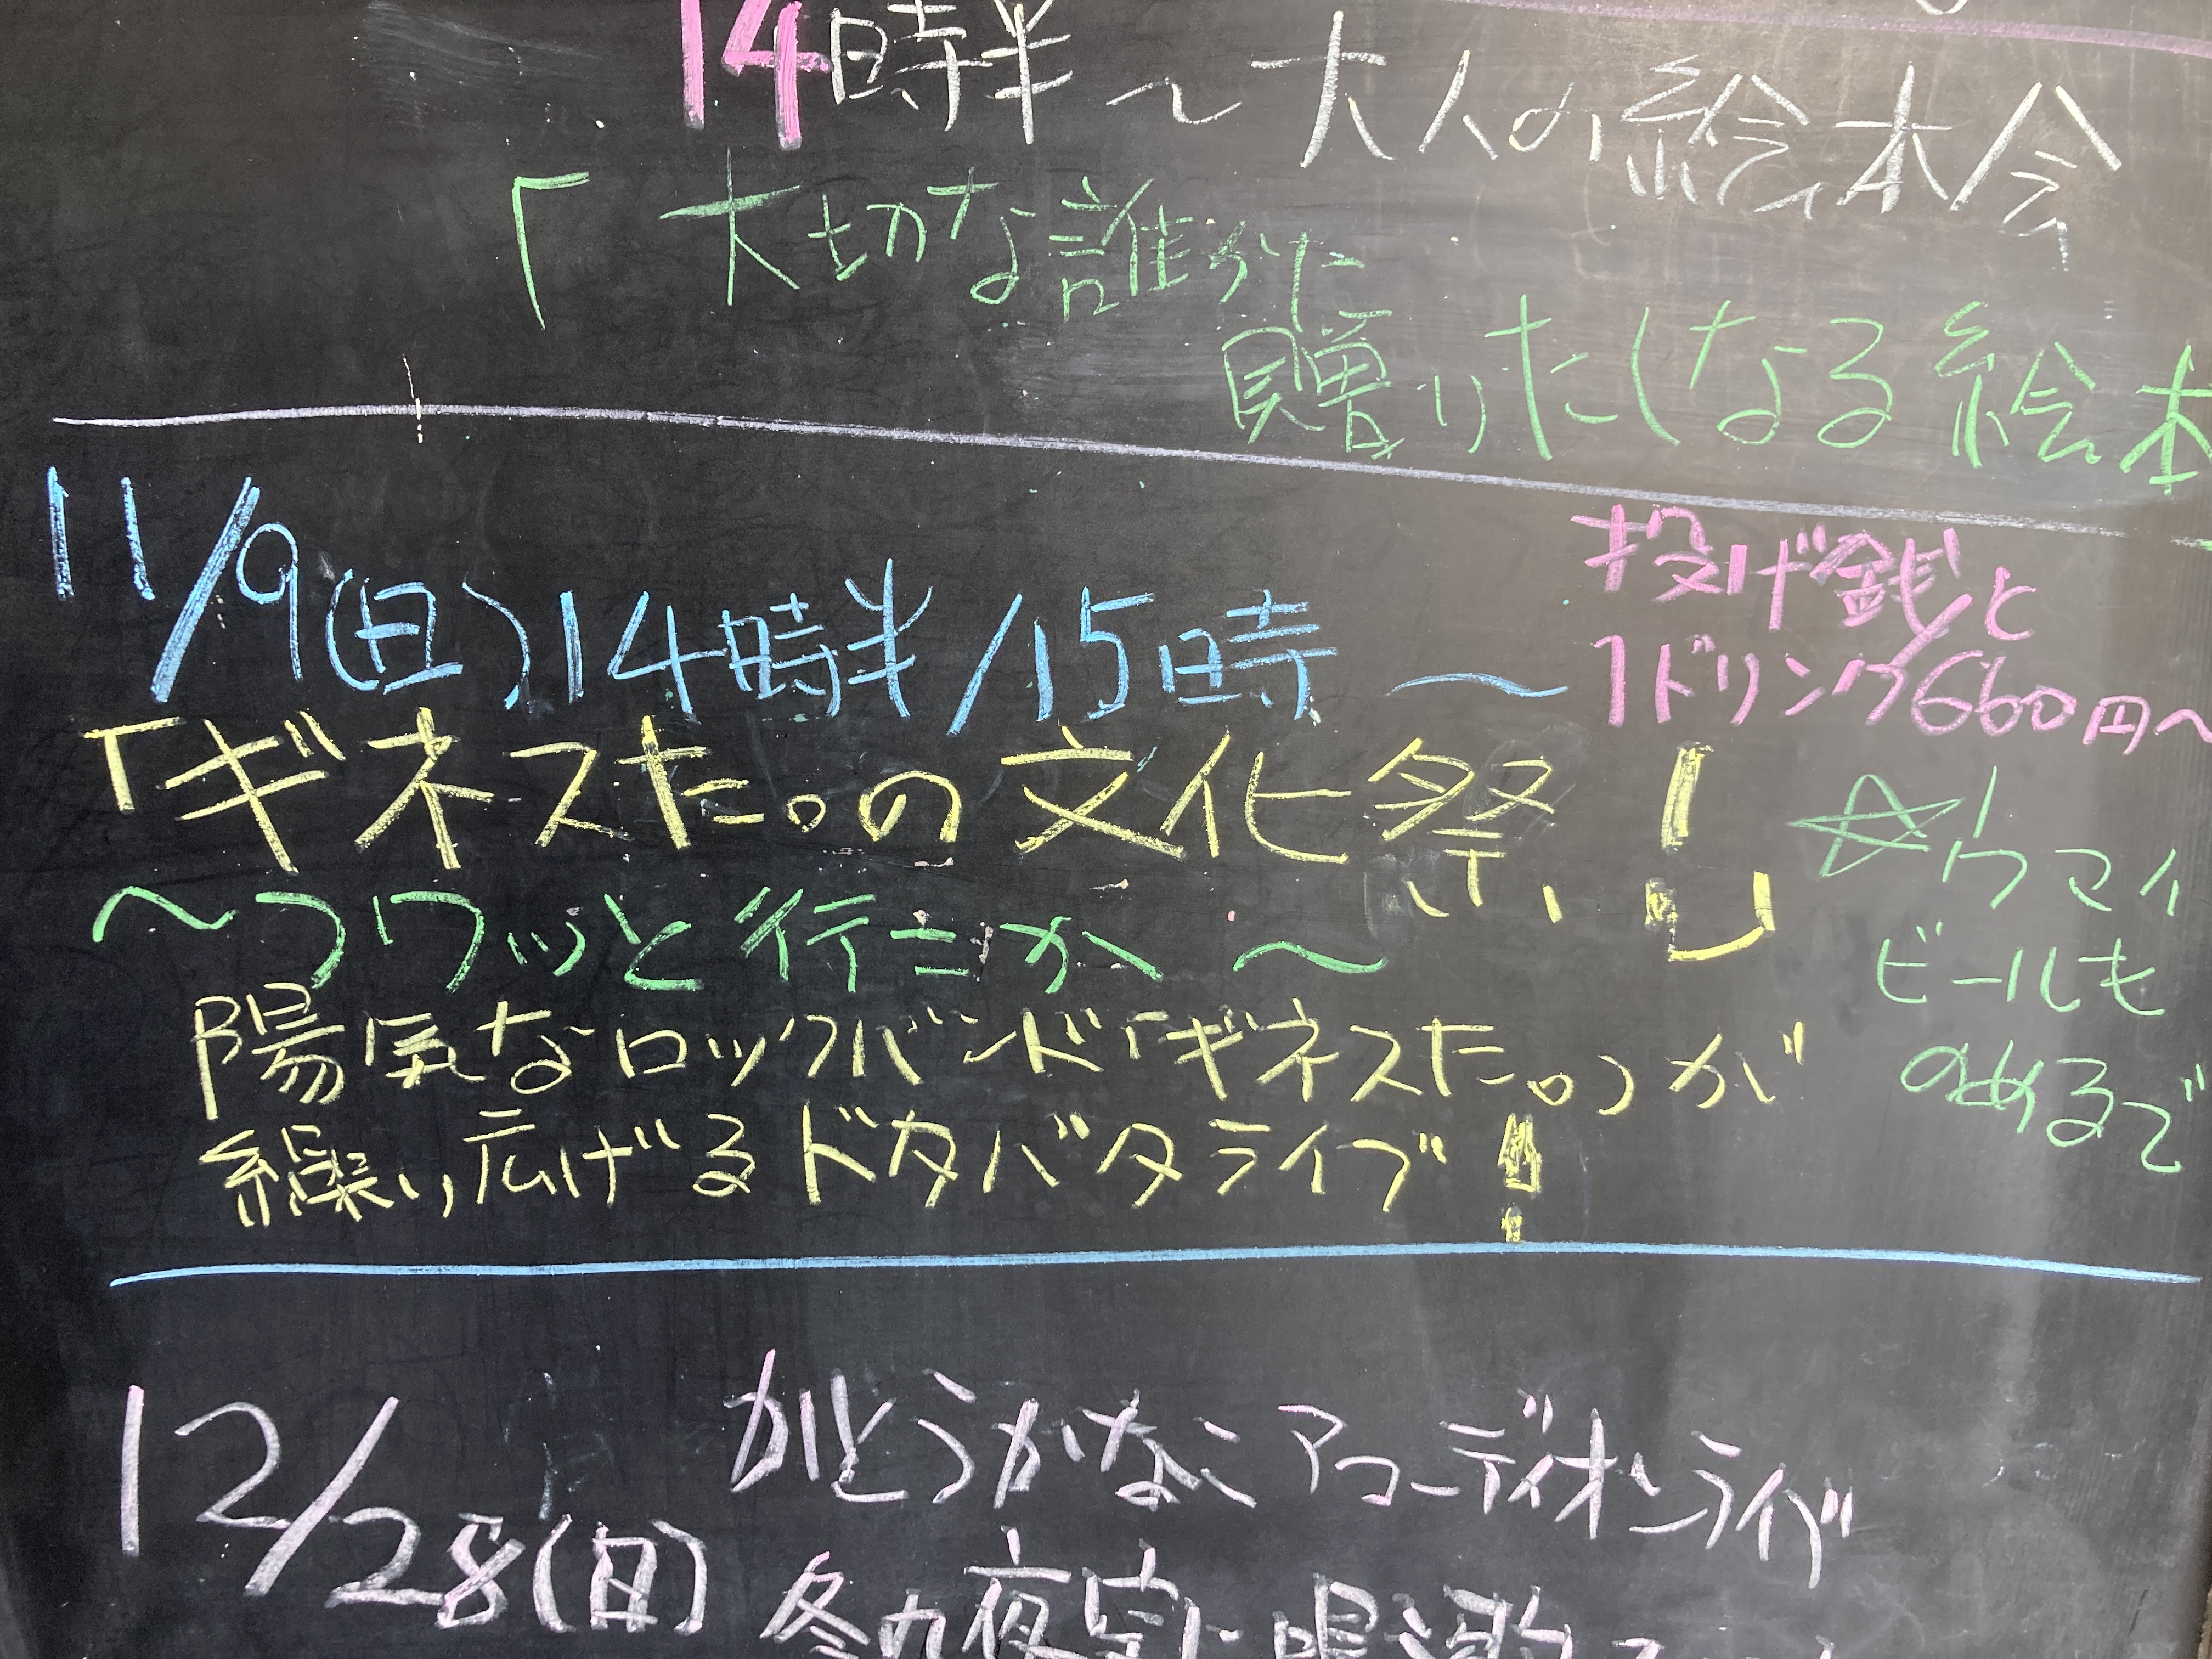 14時半～大人の絵本会
「大切な誰かに
贈りたくなる絵本
11/9(日)14時半/15時～
投げ銭と
1ドリンク660円～
「ギネスた。の文化祭!」
☆ウマイ
ビールも
のめるで
～フワッと行こか～
陽気なロックバンド「ギネスた。」が
繰り広げるドタバタライブ!
12/28(日)
かとうかなこアコーディオンライブ
冬の夜空に